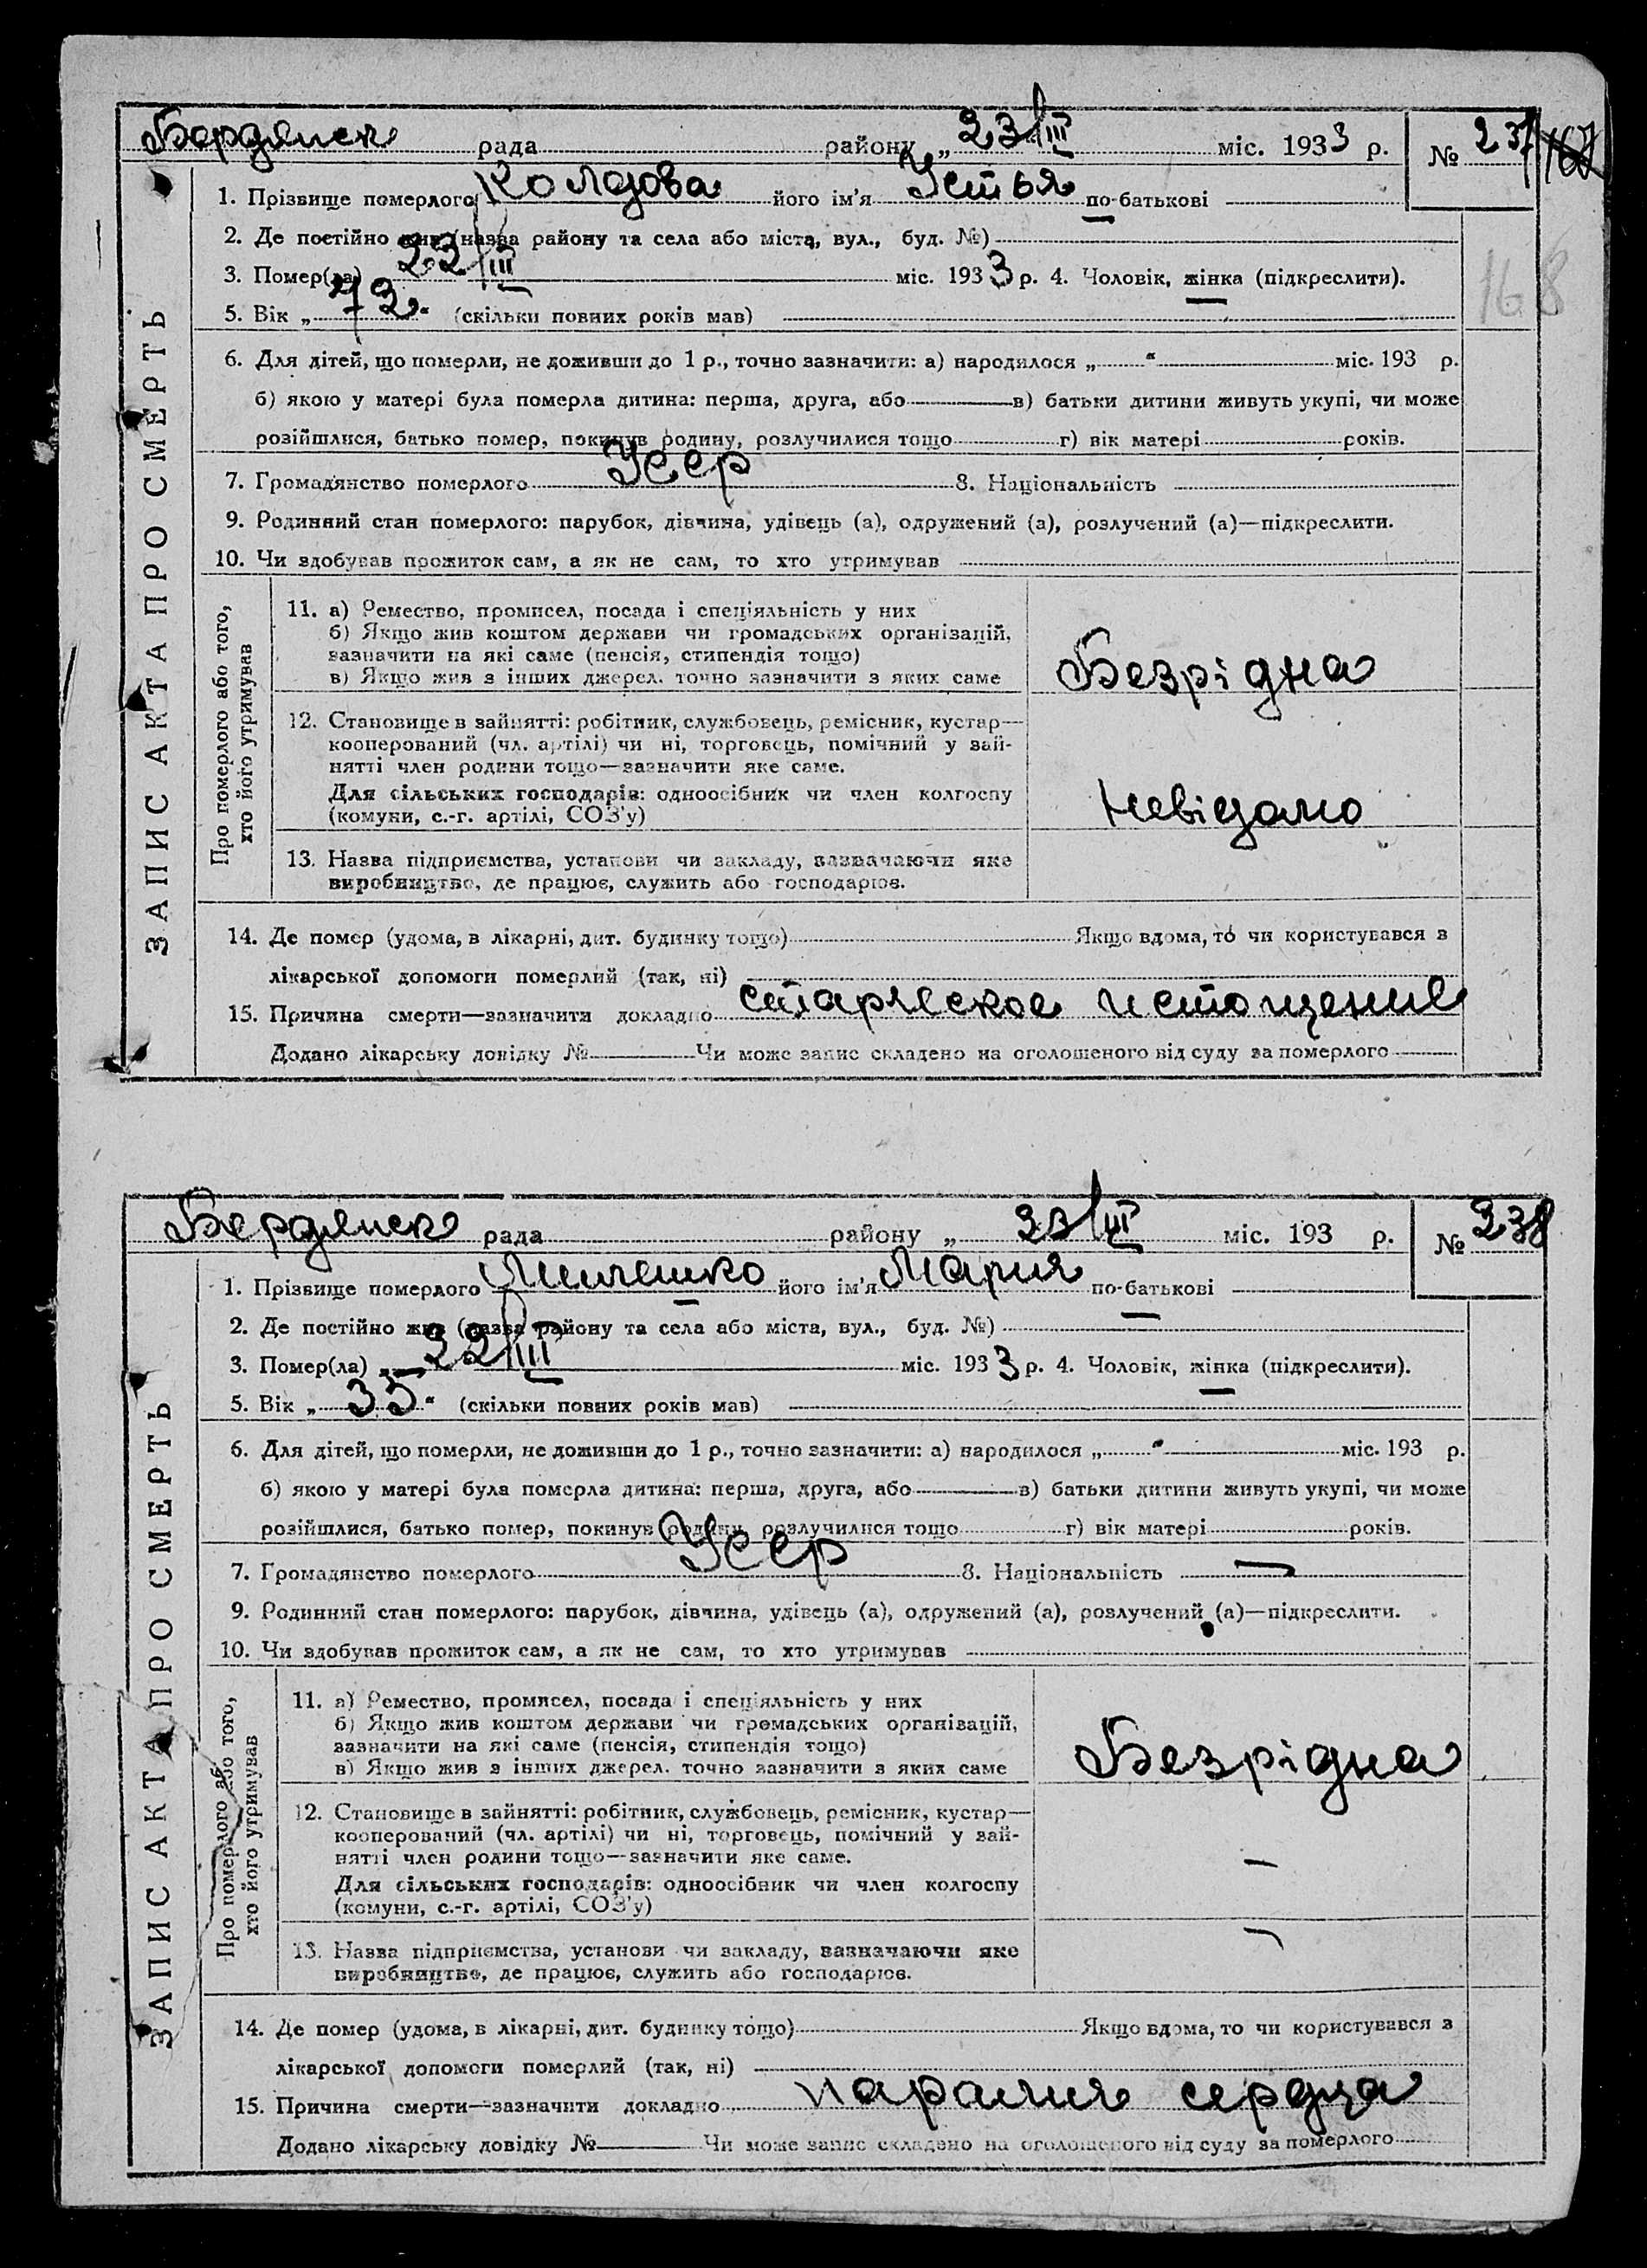 Бердянск рада району „ 23/III міс. 1933 р. № 237 167
1. Прізвище померлого Колдова його ім'я Устья по-батькові
2. Де постійно жив (назва району та села або міста, вул., буд. №)
3. Помер(ла) 22/III міс. 1933 р. 4. Чоловік, жінка (підкреслити).
168
5. Вік „ 72 “ (скільки повних років мав)
6. Для дітей, що померли, не доживши до 1 р., точно зазначити: а) народилося „ “ міс. 193 р.
б) якою у матері була померла дитина: перша, друга, або в) батьки дитини живуть укупі, чи може
розійшлися, батько помер, покинув родину, розлучилися тощо г) вік матері років.
7. Громадянство померлого Усср 8. Національність
9. Родинний стан померлого: парубок, дівчина, удівець (а), одружений (а), розлучений (а)—підкреслити.
10. Чи здобував прожиток сам, а як не сам, то хто утримував
ЗАПИС АКТА ПРО СМЕРТЬ
Про померлого або того,
хто його утримував
11. а) Ремество, промисел, посада і спеціяльність у них
б) Якщо жив коштом держави чи громадських організацій,
зазначити на які саме (пенсія, стипендія тощо)
в) Якщо жив з інших джерел. точно зазначити з яких саме
Безрідна
12. Становище в зайнятті: робітник, службовець, ремісник, кустар—
кооперований (чл. артілі) чи ні, торговець, помічний у зай-
нятті член родини тощо—зазначити яке саме.
Для сільських господарів: одноосібник чи член колгоспу
(комуни, с.-г. артілі, СОЗ'у)
Невідомо
13. Назва підприємства, установи чи закладу, зазначаючи яке
виробництво, де працює, служить або господарює.
14. Де помер (удома, в лікарні, дит. будинку тощо) Якщо вдома, то чи користувався з
лікарської допомоги померлий (так, ні)
15. Причина смерти—зазначити докладно старческое истощение
Додано лікарську довідку № Чи може запис складено на оголошеного від суду за померлого
Бердянск рада району „ 23/III міс. 193 р. № 238
1. Прізвище померлого його ім'я Мария по-батькові —
2. Де постійно жив (назва району та села або міста, вул., буд. №)
3. Помер(ла) „ 22/III міс. 1933 р. 4. Чоловік, жінка (підкреслити).
5. Вік „ 35 “ (скільки повних років мав)
6. Для дітей, що померли, не доживши до 1 р., точно зазначити: а) народилося „ “ міс. 193 р.
б) якою у матері була померла дитина: перша, друга, або в) батьки дитини живуть укупі, чи може
розійшлися, батько помер, покинув родину, розлучилися тощо г) вік матері років.
7. Громадянство померлого Усср 8. Національність —
9. Родинний стан померлого: парубок, дівчина, удівець (а), одружений (а), розлучений (а)—підкреслити.
10. Чи здобував прожиток сам, а як не сам, то хто утримував
ЗАПИС АКТА ПРО СМЕРТЬ
Про померлого або того,
хто його утримував
11. а) Ремество, промисел, посада і спеціяльність у них
б) Якщо жив коштом держави чи громадських організацій,
зазначити на які саме (пенсія, стипендія тощо)
в) Якщо жив з інших джерел. точно зазначити з яких саме
Безрідна
12. Становище в зайнятті: робітник, службовець, ремісник, кустар—
кооперований (чл. артілі) чи ні, торговець, помічний у зай-
нятті член родини тощо—зазначити яке саме.
Для сільських господарів: одноосібник чи член колгоспу
(комуни, с.-г. артілі, СОЗ'у)
—
13. Назва підприємства, установи чи закладу, зазначаючи яке
виробництво, де працює, служить або господарює.
—
14. Де помер (удома, в лікарні, дит. будинку тощо) Якщо вдома, то чи користувався з
лікарської допомоги померлий (так, ні)
15. Причина смерти—зазначити докладно паралич сердца
Додано лікарську довідку № Чи може запис складено на оголошеного від суду за померлого